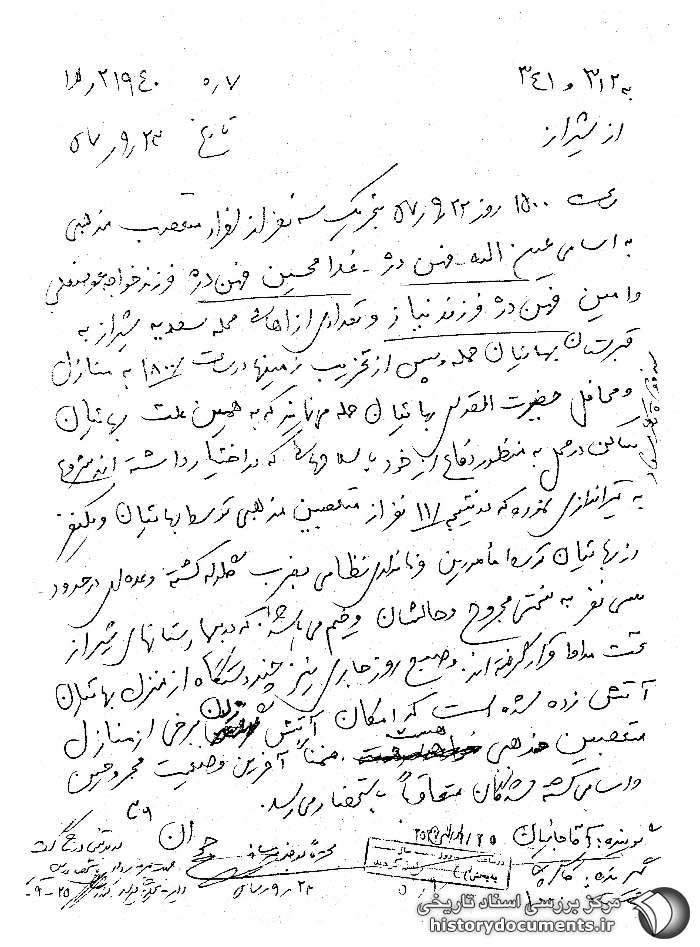 به ۳۱۲ و ۳٤۱
از شیراز
تاریخ ۲۳ر۹ر۵۷
ساعت ۱۵۰۰ روز ۲۲ر۹ر۵۷ بتحریک سه نفر از افراد متعصب مذهبی
به اسامی عین اله فهن دژ - غلامحسین فهن دژ فرزند خواجه عوضعلی
و امین فهن دژ فرزند نیاز و تعدادی از اهالی محله سعدیه شیراز به
قبرستان بهائیان حمله و پس از تخریب زمینها در ساعت ۱۸۰۰ به منازل
و محافل حضیرت القدس بهائیان حمله مینمایند که به همین علت بهائیان
ساکن در محل به منظور دفاع از خود با سلاحهائی که در اختیار داشته اند شروع
به تیراندازی نموده که در نتیجه ۱۱ نفر از متعصبین مذهبی توسط بهائیان و یکنفر
از بهائیان توسط مامورین فرمانداری نظامی بضرب گلوله کشته و عده ای در حدود
سی نفر به سختی مجروح و حالشان وخیم می باشد که در بیمارستانهای شیراز
تحت مداوا قرار گرفته اند. و صبح روز جاری نیز چند دستگاه از منزل بهائیان
آتش زده شده است که امکان آتش زدن برخی از منازل
متعصبین مذهبی هست. ضمناً آخرین وضعیت مجروحین
و اسامی کشته شدگان متعاقباً باستحضار می رسد.
شنونده: آقاجانیان
گوینده:
۲۳ر۹ر۵۷
مرکز بررسی اسناد تاریخی
historydocuments.ir